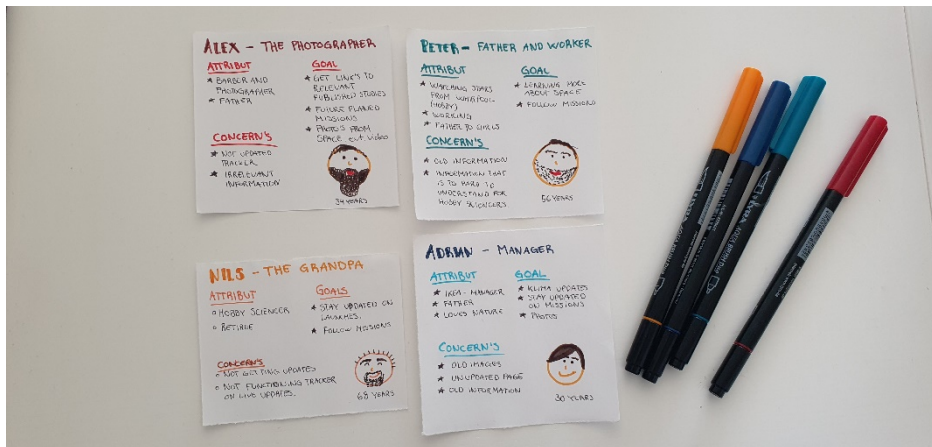 ALEX - THE PHOTOGRAPHER
ATTRIBUT
★ BARBER AND
PHOTOGRAPHER
★ FATHER
GOAL
★ GET LINK'S TO
RELEVANT
PUBLISHED STUDIES
★ FUTURE PLANED
MISSIONS
★ PHOTO'S FROM
SPACE ext. video
CONCERN'S
★ NOT UPDATED
TRACKER
★ IRRELEVANT
INFORMATION
34 YEARS
PETER - FATHER AND WORKER
ATTRIBUT
★ WATCHING STARS
FROM
(HOBBY)
★ WORKING
★ FATHER TO GIRLS
GOAL
★ LEARNING MORE
ABOUT SPACE
★ FOLLOW MISSIONS
CONCERN'S
★ OLD INFORMATION
★ INFORMATION THAT
IS TO HARD TO
UNDERSTAND FOR
HOBBY SCIENCERS
56 YEARS
NILS - THE GRANDPA
ATTRIBUT
○ HOBBY SCIENCER
○ RETIREE
GOALS
★ STAY UPDATED ON
LAUNCHES.
★ FOLLOW MISSIONS
CONCERN'S
○ NOT GETTING UPDATES
○ NOT FUNCTIONING TRACKER
ON LIVE UPDATES.
68 YEARS
ADRIAN - MANAGER
ATTRIBUT
★ IKEA - MANAGER
★ FATHER
★ LOVES NATURE
GOAL
★ KLIMA UPDATES
★ STAY UPDATED
ON MISSIONS
★ PHOTOS
CONCERN'S
★ OLD IMAGES
★ UNUPDATED PAGE
★ OLD INFORMATION
30 YEARS